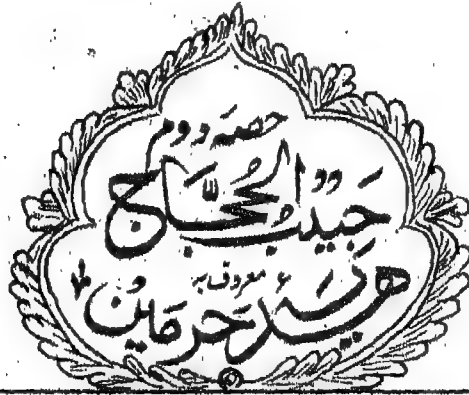 حصہ دوم
حَبِیبُ الحُجَّاج
معروف بہ
حرمین